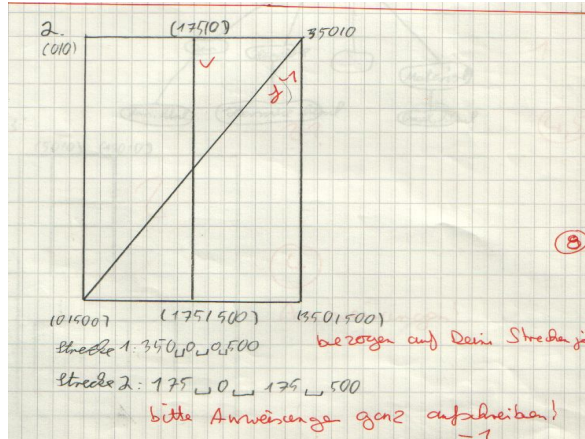 2. (175|0) 350|0
(0|0)
(0|500) (175|500) (350|500)
8
Strecke 1: 350␣0␣0␣500 bezogen auf Deine Strecken ja
Strecke 2: 175␣0␣175␣500
bitte Anweisungen ganz aufschreiben!
-1